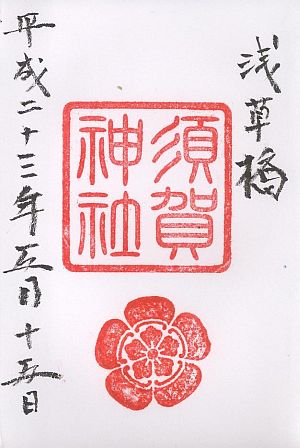 浅草橋
須賀
神社
平成二十三年五月十五日